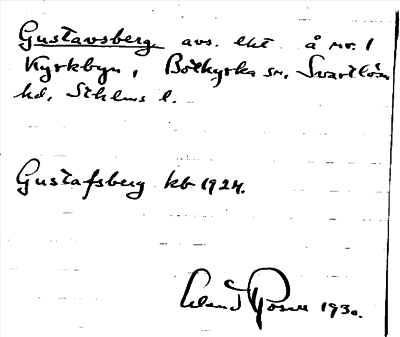 Gustavsberg avs. lht å nr. 1
Kyrkbyn, Botkyrka sn, Svartlösa
hd, Sthlms l.
Gustafsberg kb 1924.
1930.